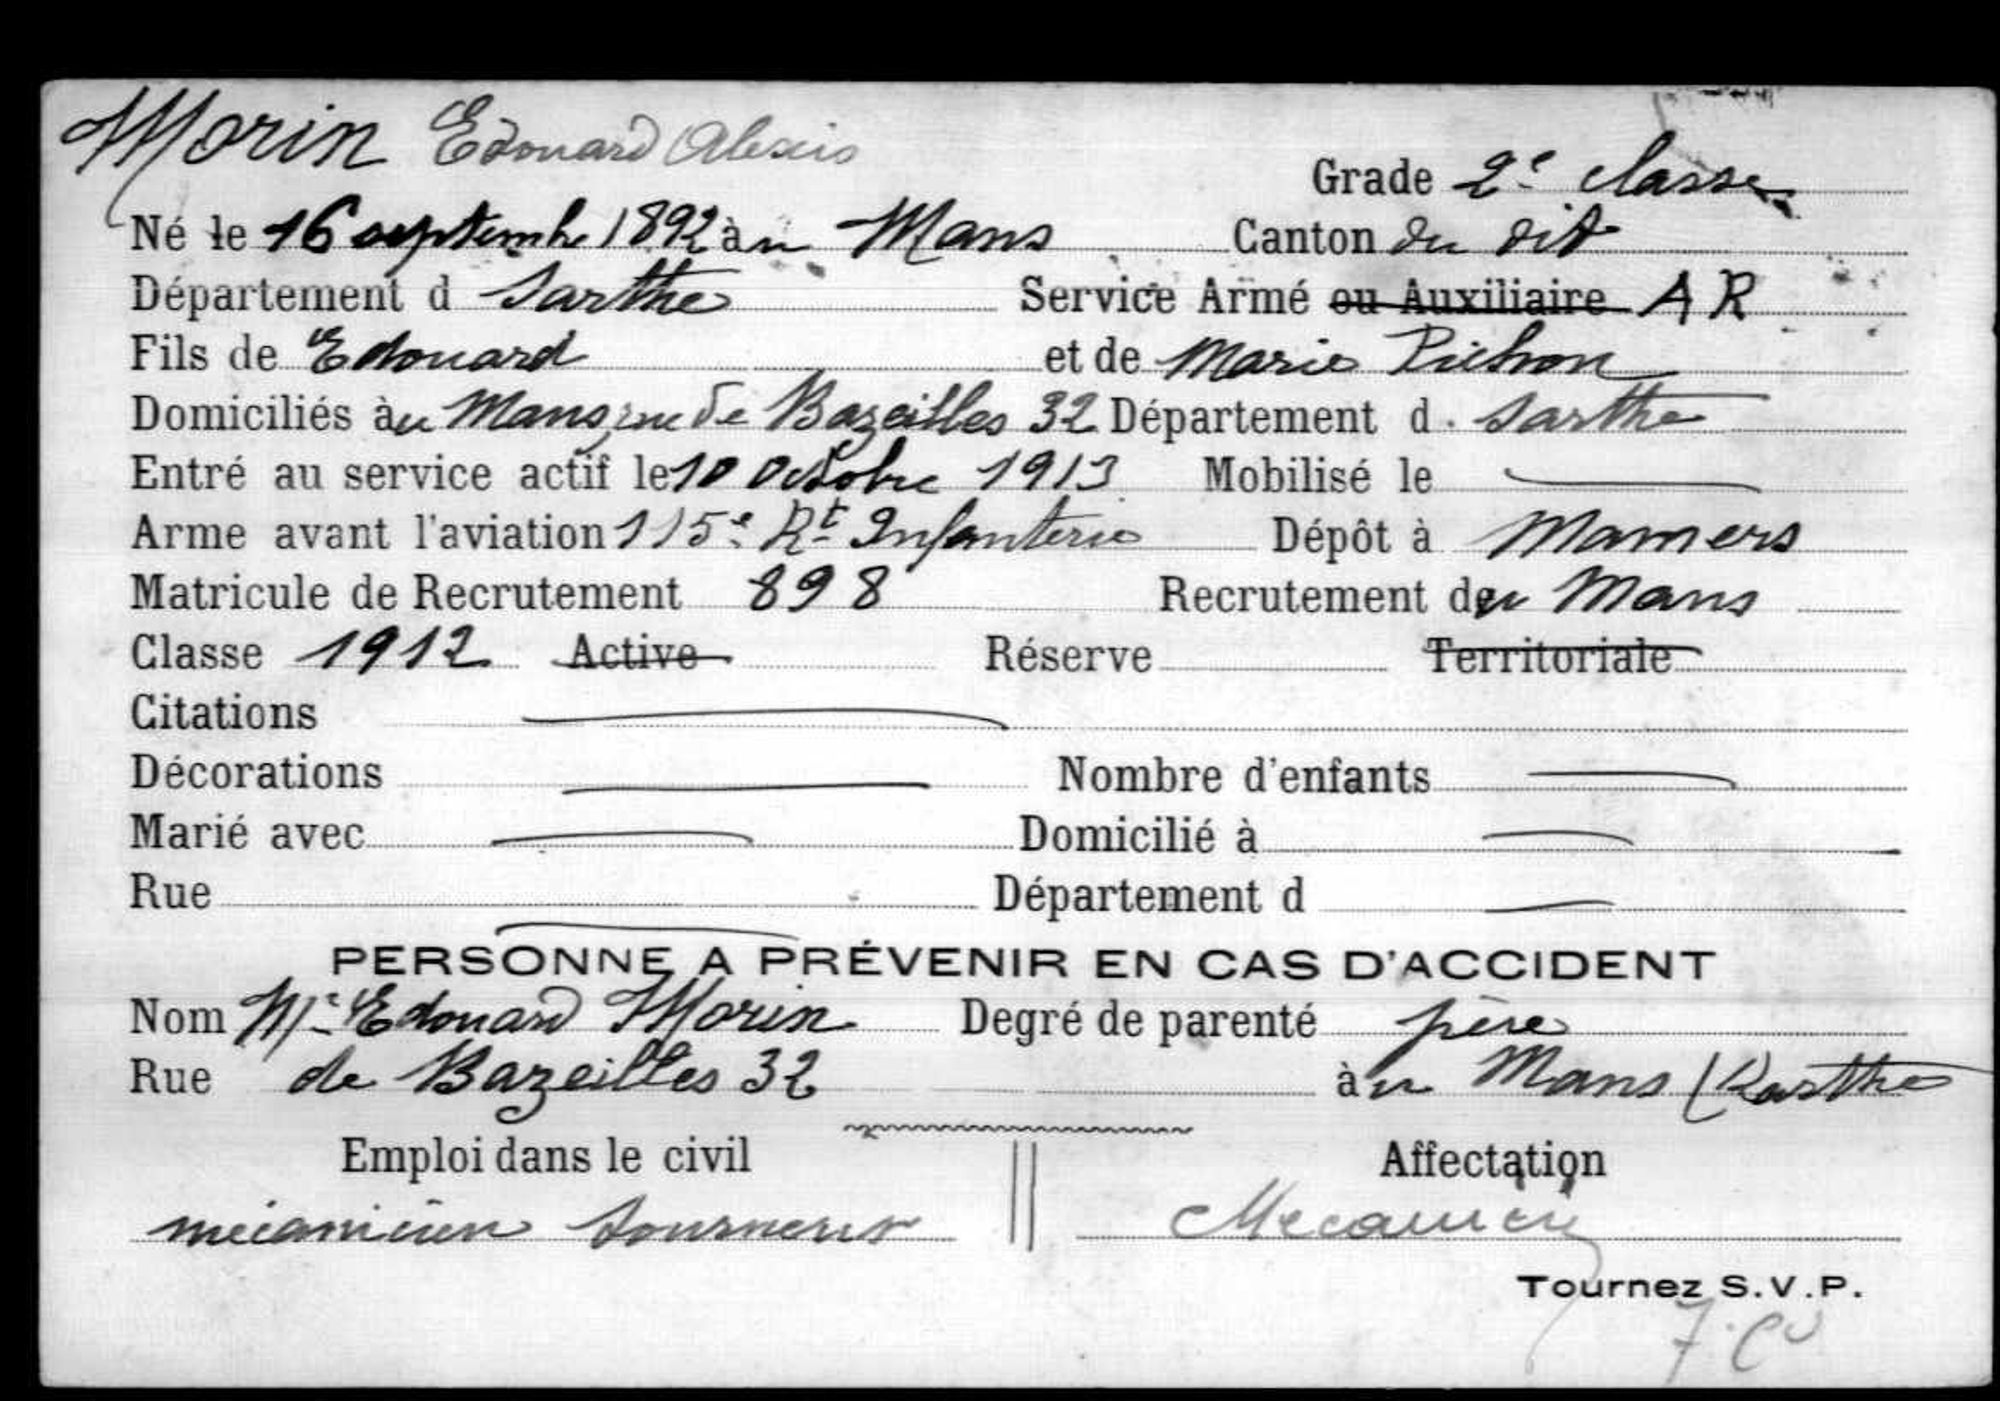 Morin Edouard Alexis
Grade 2e classe
Né le 16 septembre 1892 à au Mans Canton du dit
Département d Sarthe Service Armé ou Auxiliaire A R
Fils de Edouard et de Marie Pichon
Domiciliés à au Mans, rue de Bazeilles 32 Département d. Sarthe
Entré au service actif le 10 Octobre 1913 Mobilisé le
Arme avant l'aviation 115e Rt Infanterie Dépôt à Mamers
Matricule de Recrutement 898 Recrutement du Mans
Classe 1912 Active Réserve Territoriale
Citations
Décorations Nombre d'enfants
Marié avec Domicilié à
Rue Département d
PERSONNE A PRÉVENIR EN CAS D'ACCIDENT
Nom Mr Edouard Morin Degré de parenté père
Rue de Bazeilles 32 à au Mans (Sarthe
Emploi dans le civil Affectation
mécanicien tourneur Mecanicien
Tournez S.V.P.